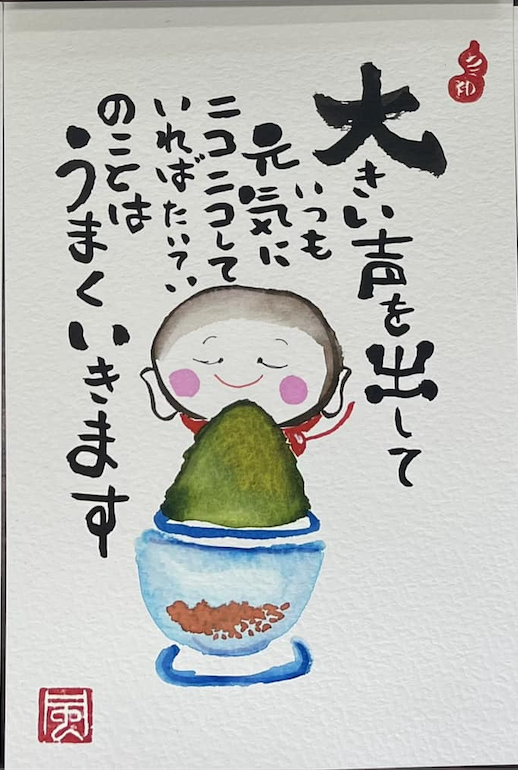 大きい声を出して
いつも
元気に
ニコニコして
いればたいてい
のことは
うまくいきます
風